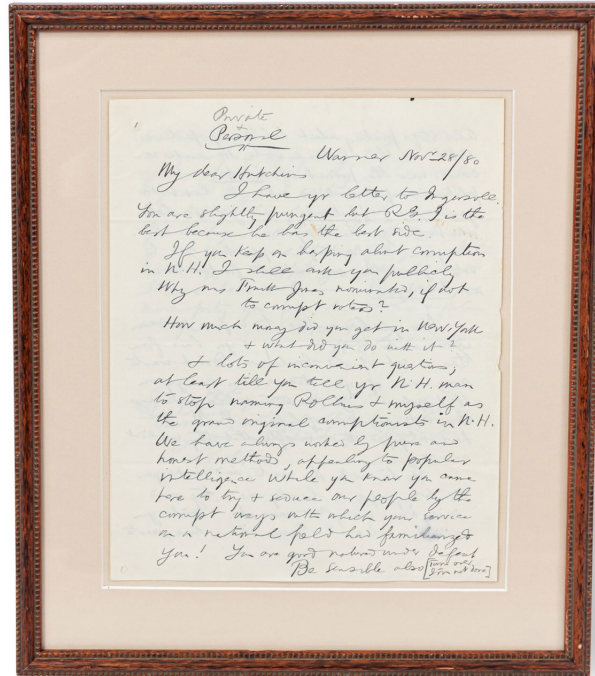 Private
+
Personal
Warner Nov. 28/80
My dear Hutchins
I have yr letter to Ingersoll.
You are slightly pungent but R.G.I is the
best because he has the best side
If you keep on harping about corruption
in N.H. I shall ask you publicly
Why was Frank Jones nominated, if not
to corrupt voters?
How much money did you get in New-York
+ what did you do with it?
+ lots of inconvenient questions,
at least till you tell yr N.H. man
to stop naming Rollins + myself as
the grand original corruptionists in N.H.
We have always worked by pure and
honest methods, appealing to popular
intelligence While you know you came
here to try + seduce our people by the
corrupt ways with which your service
on a national field had familiarized
you! You are good natured under defeat
Be sensible also [Turn over
]